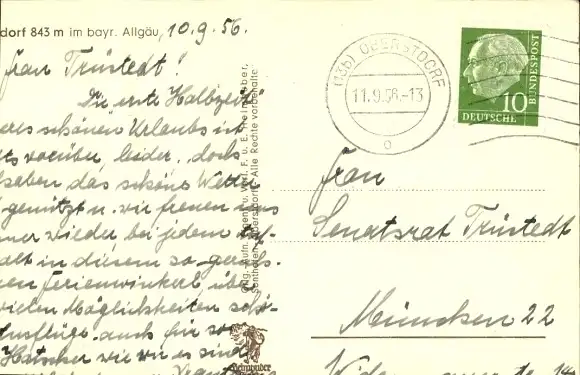 dorf 843 m im bayr. Allgäu, 10.9.56.
Frau Trüstedt!
Die erste Halbzeit
eres schönen Urlaubs ist
ts vorüber, leider, doch
haben das schöne Wetter
genützt u. wir freuen uns
mer wieder bei jedem
alt in diesem so
en Ferienwinkel, über
vielen Möglichkeiten
Ausflüge, auch für so
wie wir es sind
Orig.-Aufn. Eigent. u. Verl. F. u. E. Heimhuber,
Sonthofen Oberstdorf. Alle Rechte vorbehalten
Heimhuber
(13b) OBERSTDORF
11.9.56.-13
o
10
DEUTSCHE
BUNDESPOST
Frau
Senatsrat Trüstedt
München 22